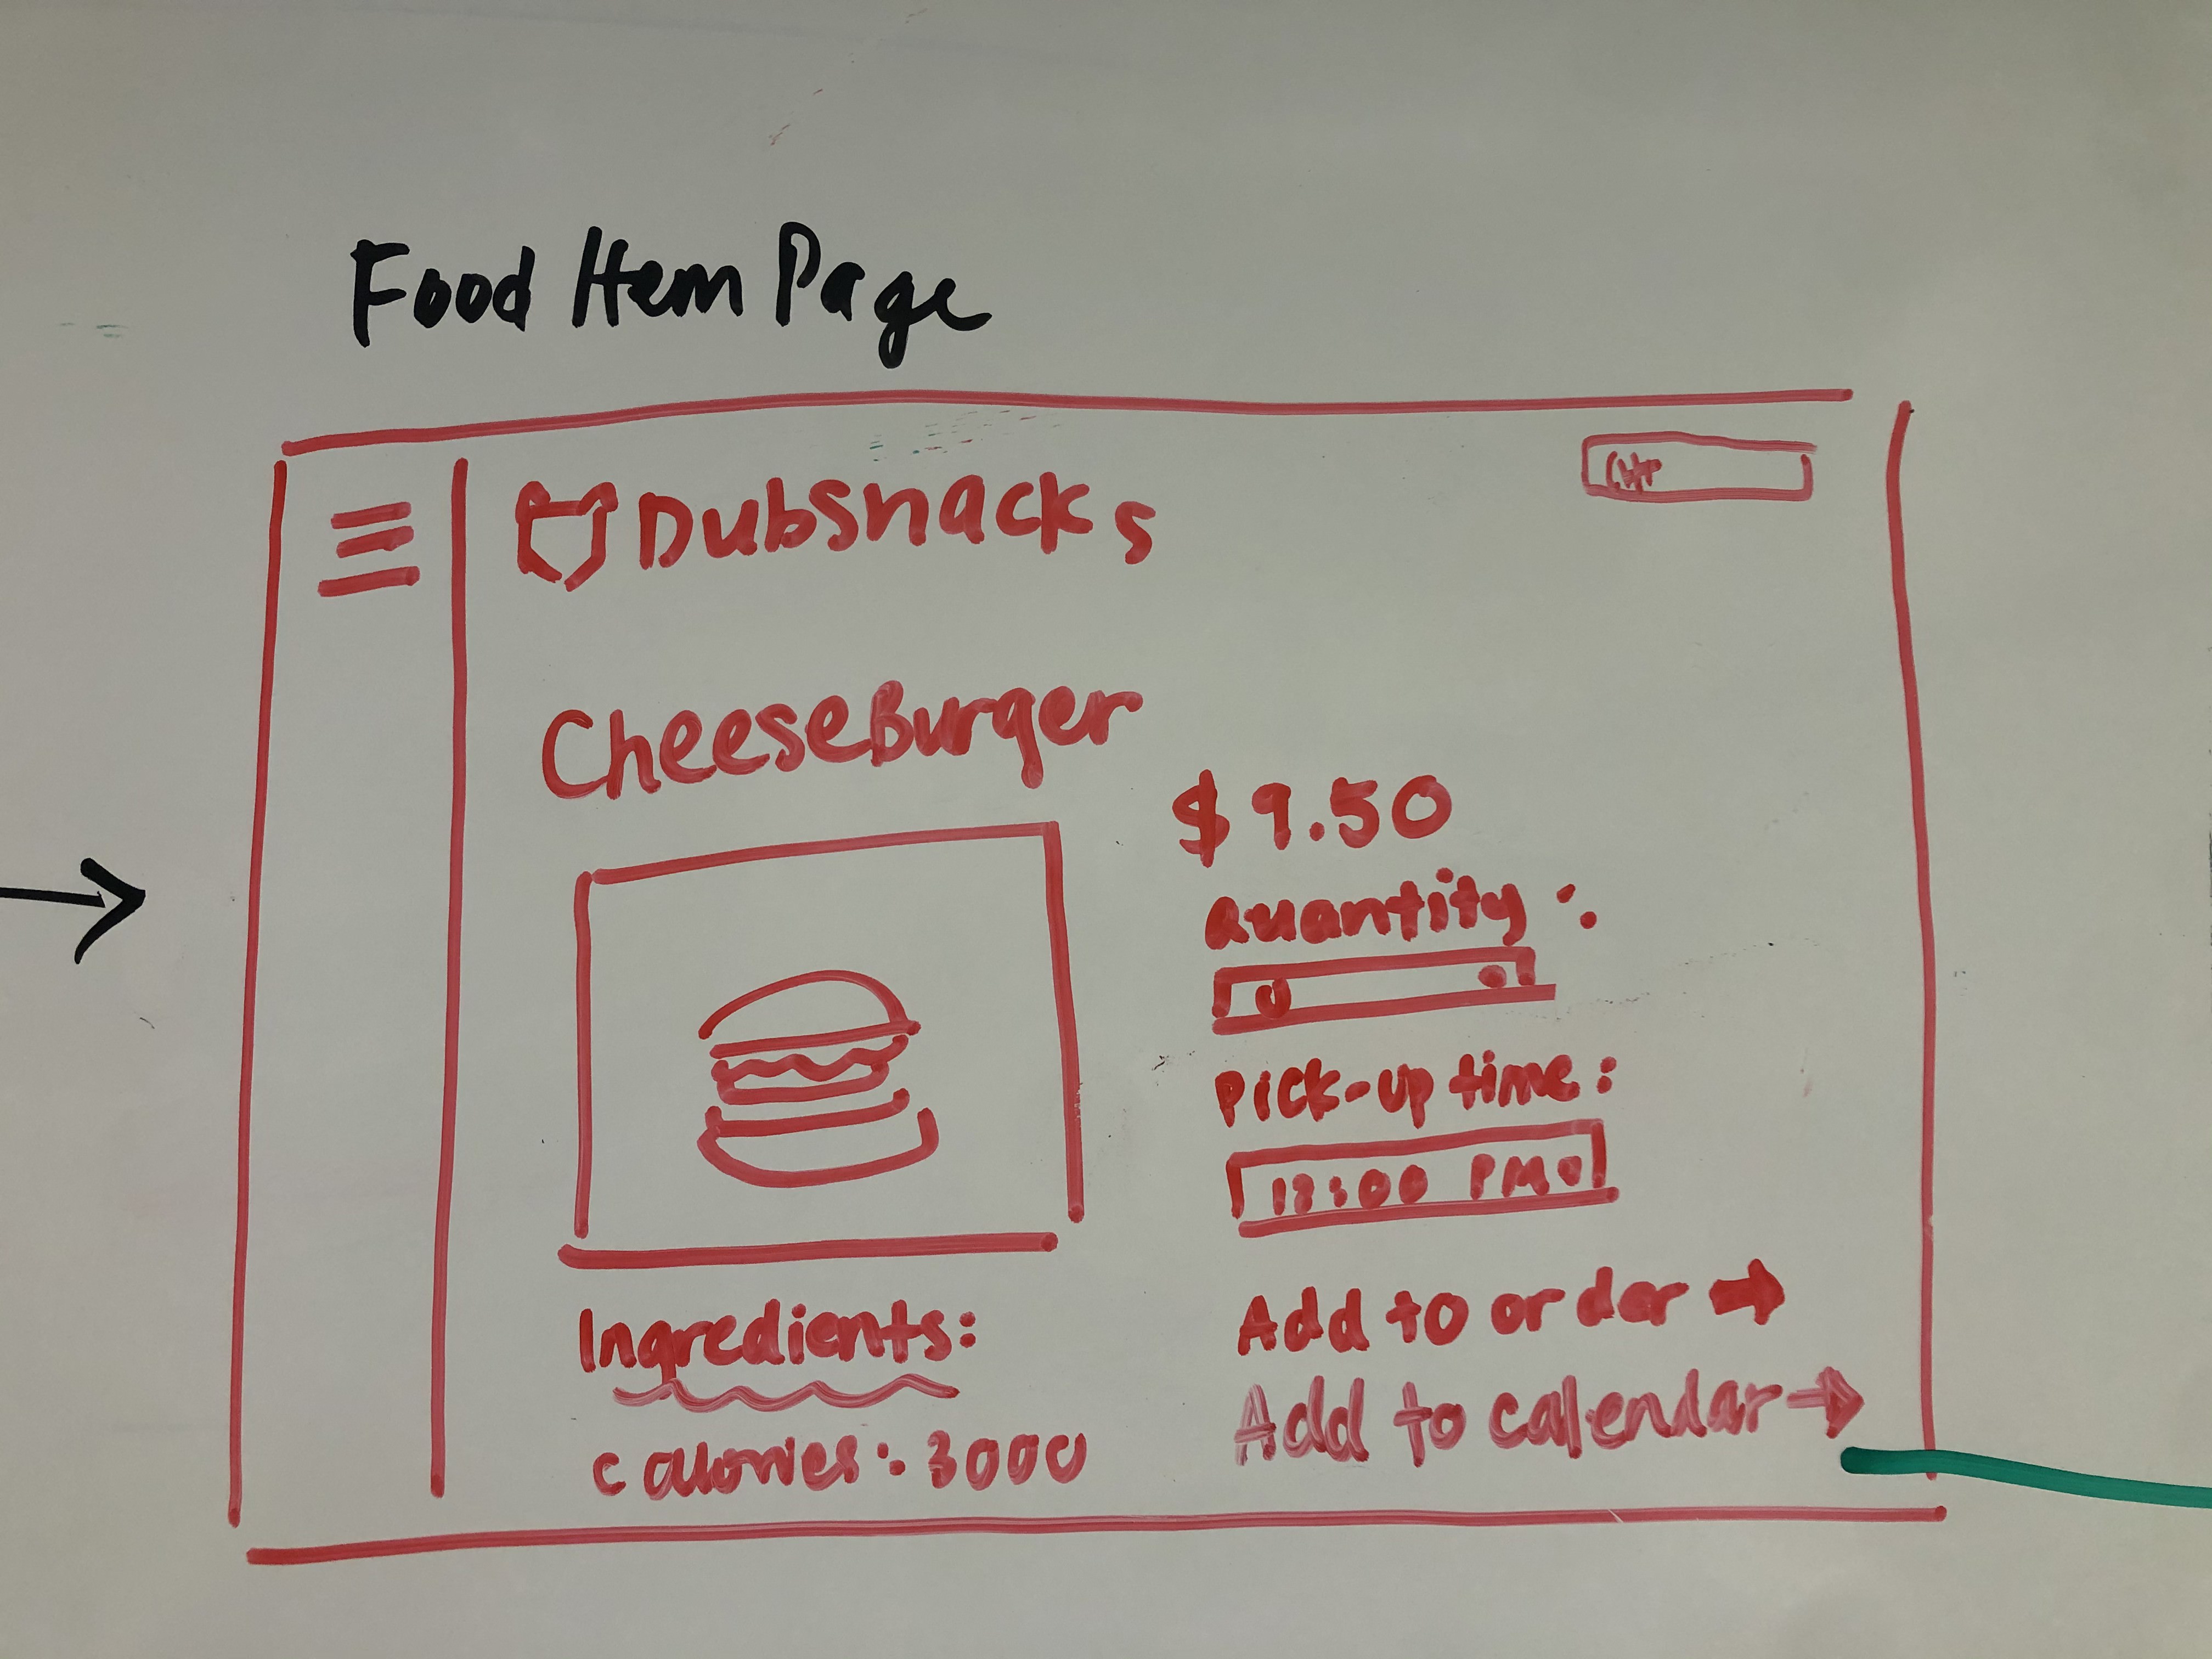 Food Item Page
Dubsnacks
CheeseBurger
$9.50
Quantity:
0
Pick-up time:
12:00 PM
Ingredients:
Add to order →
calories: 3000
Add to calendar →